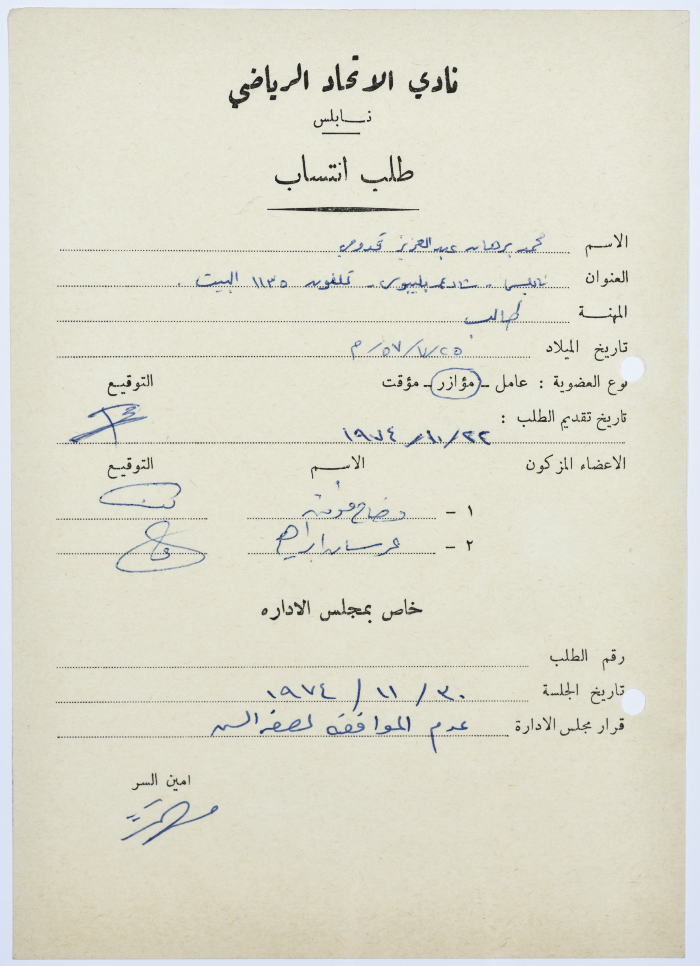 نادي الاتحاد الرياضي
نابلس
طلب انتساب
الاسم محمد برهان عبدالعزيز قدومي
العنوان نابلس - شارع بليبوس - تلفون ١١٣٥ البيت .
المهنة طالب
تاريخ الميلاد ٢٥/٧/٥٧ م
نوع العضوية : عامل - مؤازر - مؤقت التوقيع
تاريخ تقديم الطلب :
٢٢/١٠/١٩٧٤
الاعضاء المزكون الاسم التوقيع
١ - وضاح
٢ - عرسان ابراهيم
خاص بمجلس الاداره
رقم الطلب
تاريخ الجلسة ٣٠ / ١١ / ١٩٧٤
قرار مجلس الادارة عدم الموافقة لصغر السن
امين السر